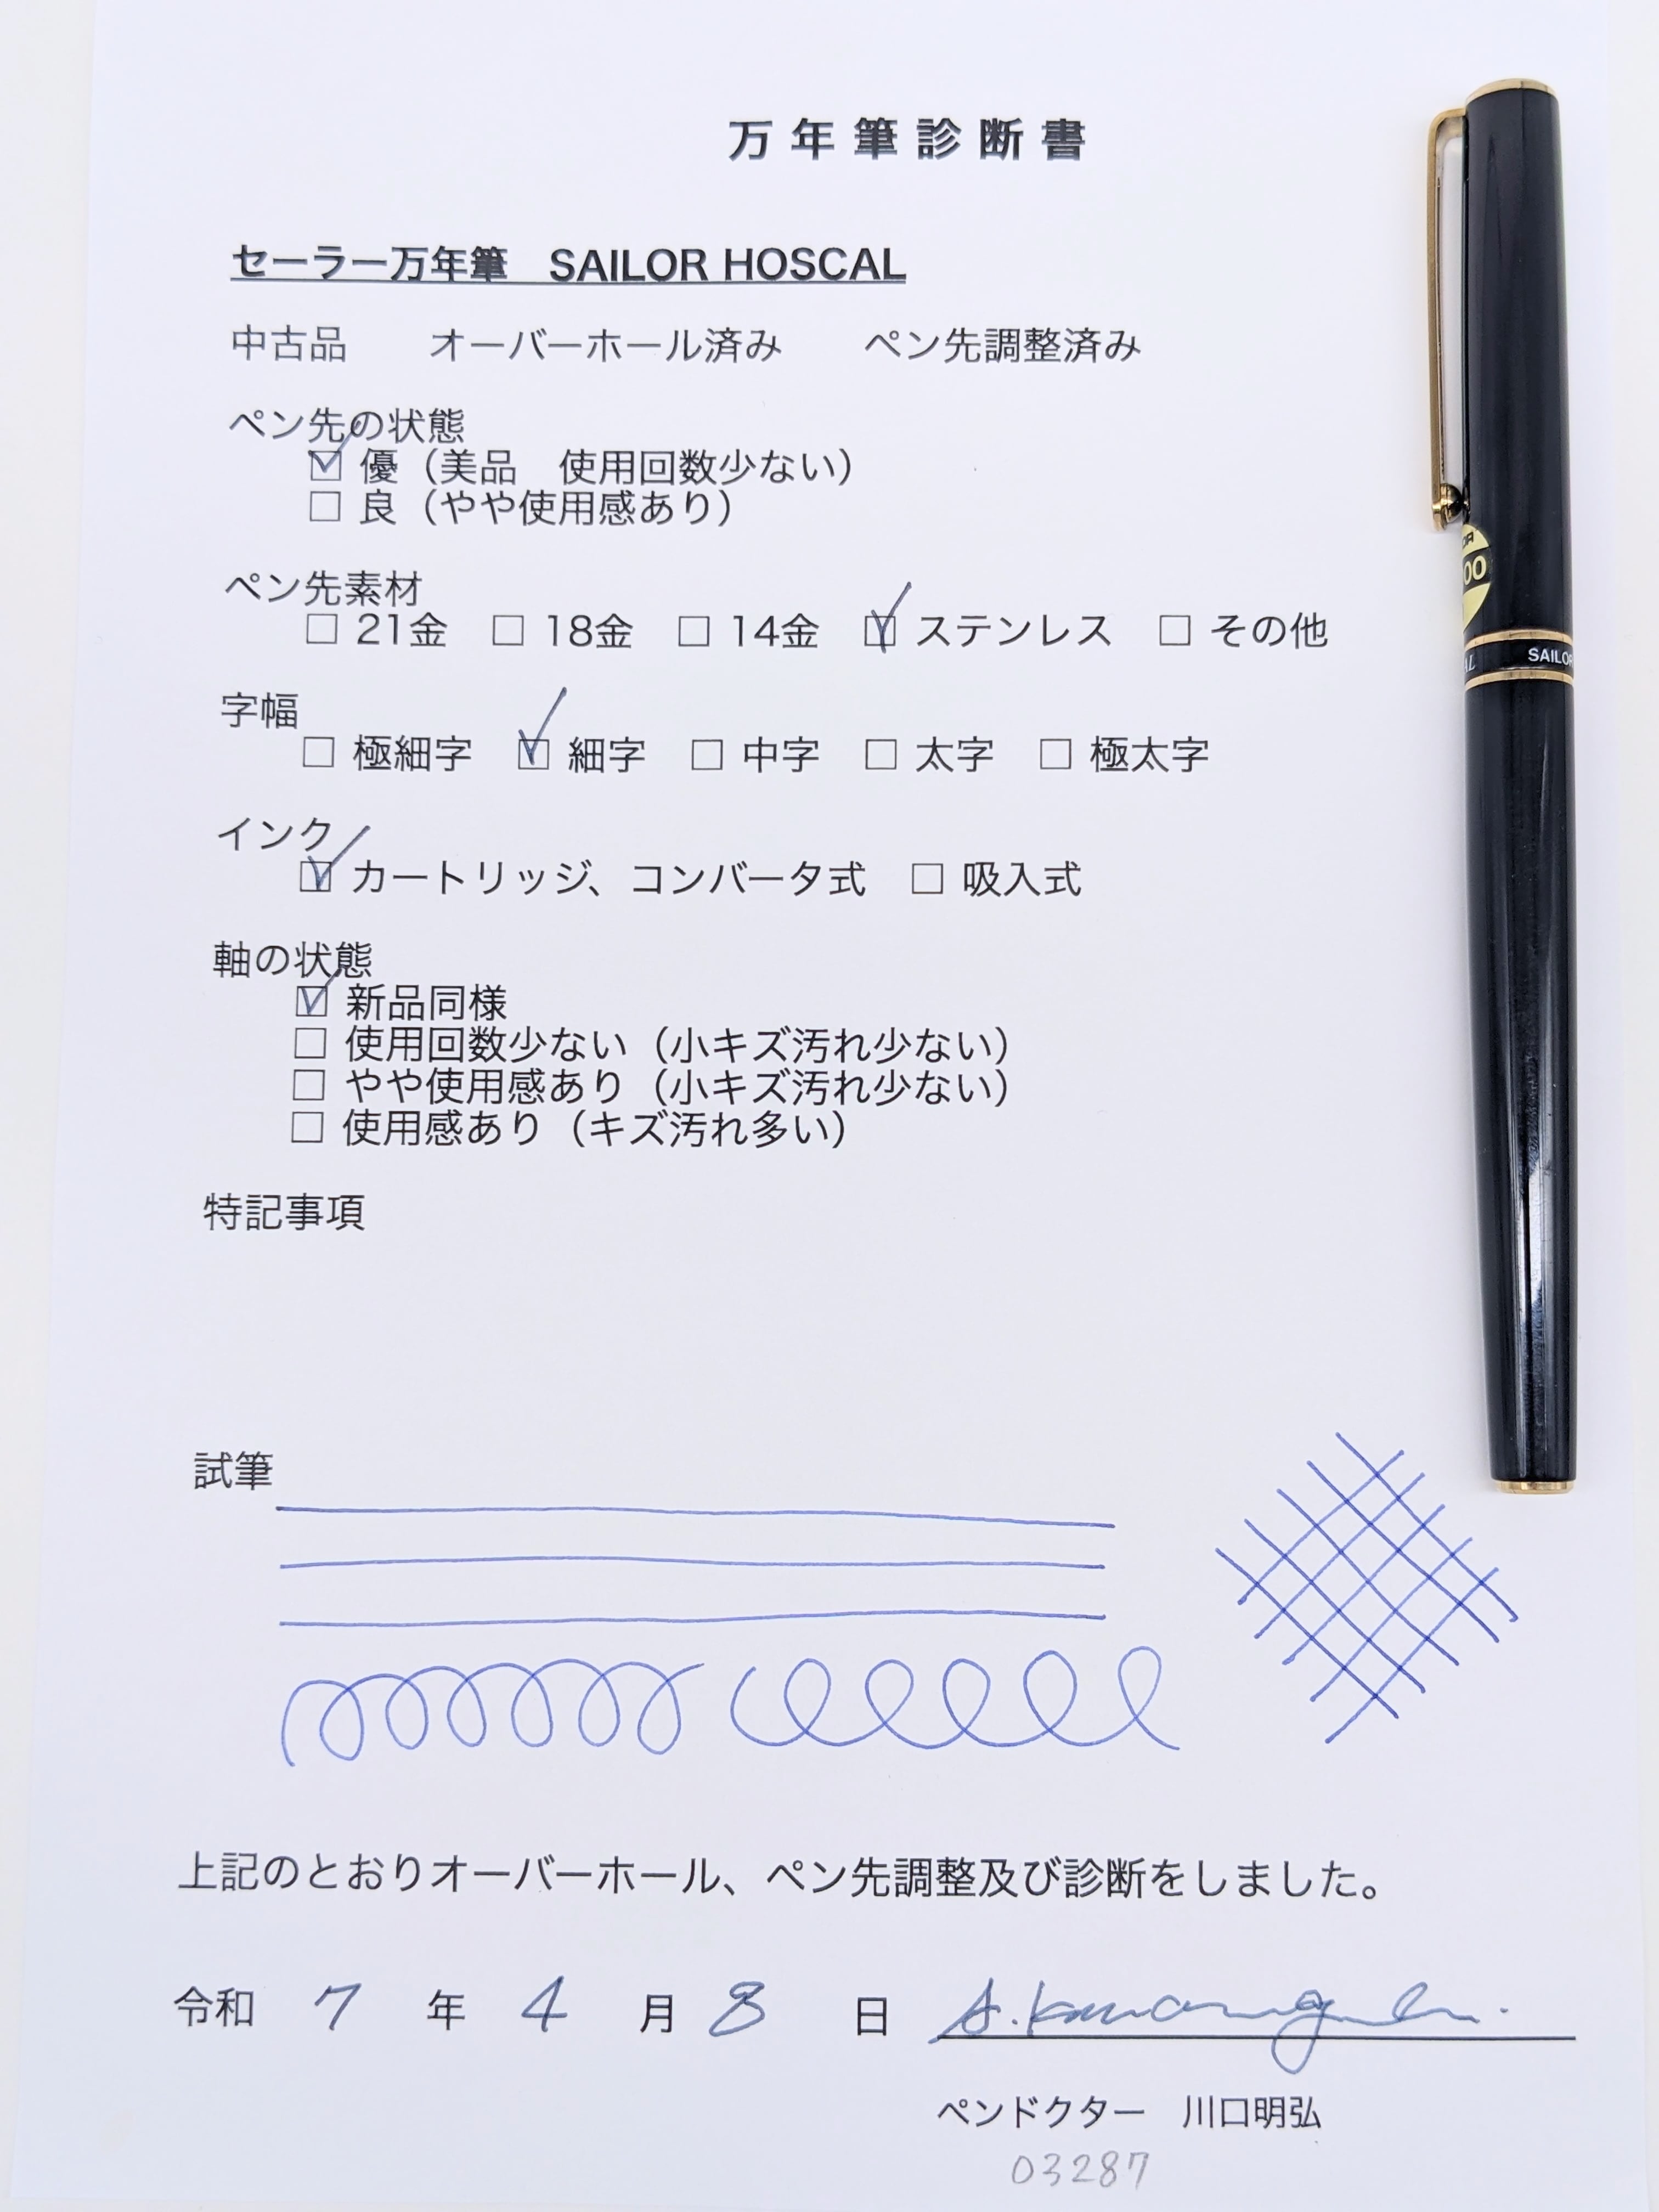 万年筆診断書
セーラー万年筆　SAILOR HOSCAL
中古品　　オーバーホール済み　　ペン先調整済み
ペン先の状態
☑ 優（美品　使用回数少ない）
□ 良（やや使用感あり）
ペン先素材
□ 21金　□ 18金　□ 14金　☑ ステンレス　□ その他
字幅
□ 極細字　☑ 細字　□ 中字　□ 太字　□ 極太字
インク
☑ カートリッジ、コンバータ式　□ 吸入式
軸の状態
☑ 新品同様
□ 使用回数少ない（小キズ汚れ少ない）
□ やや使用感あり（小キズ汚れ少ない）
□ 使用感あり（キズ汚れ多い）
特記事項
試筆
上記のとおりオーバーホール、ペン先調整及び診断をしました。
令和 7 年 4 月 8 日 A.Kawaguchi.
ペンドクター　川口明弘
03287
00
SAILOR